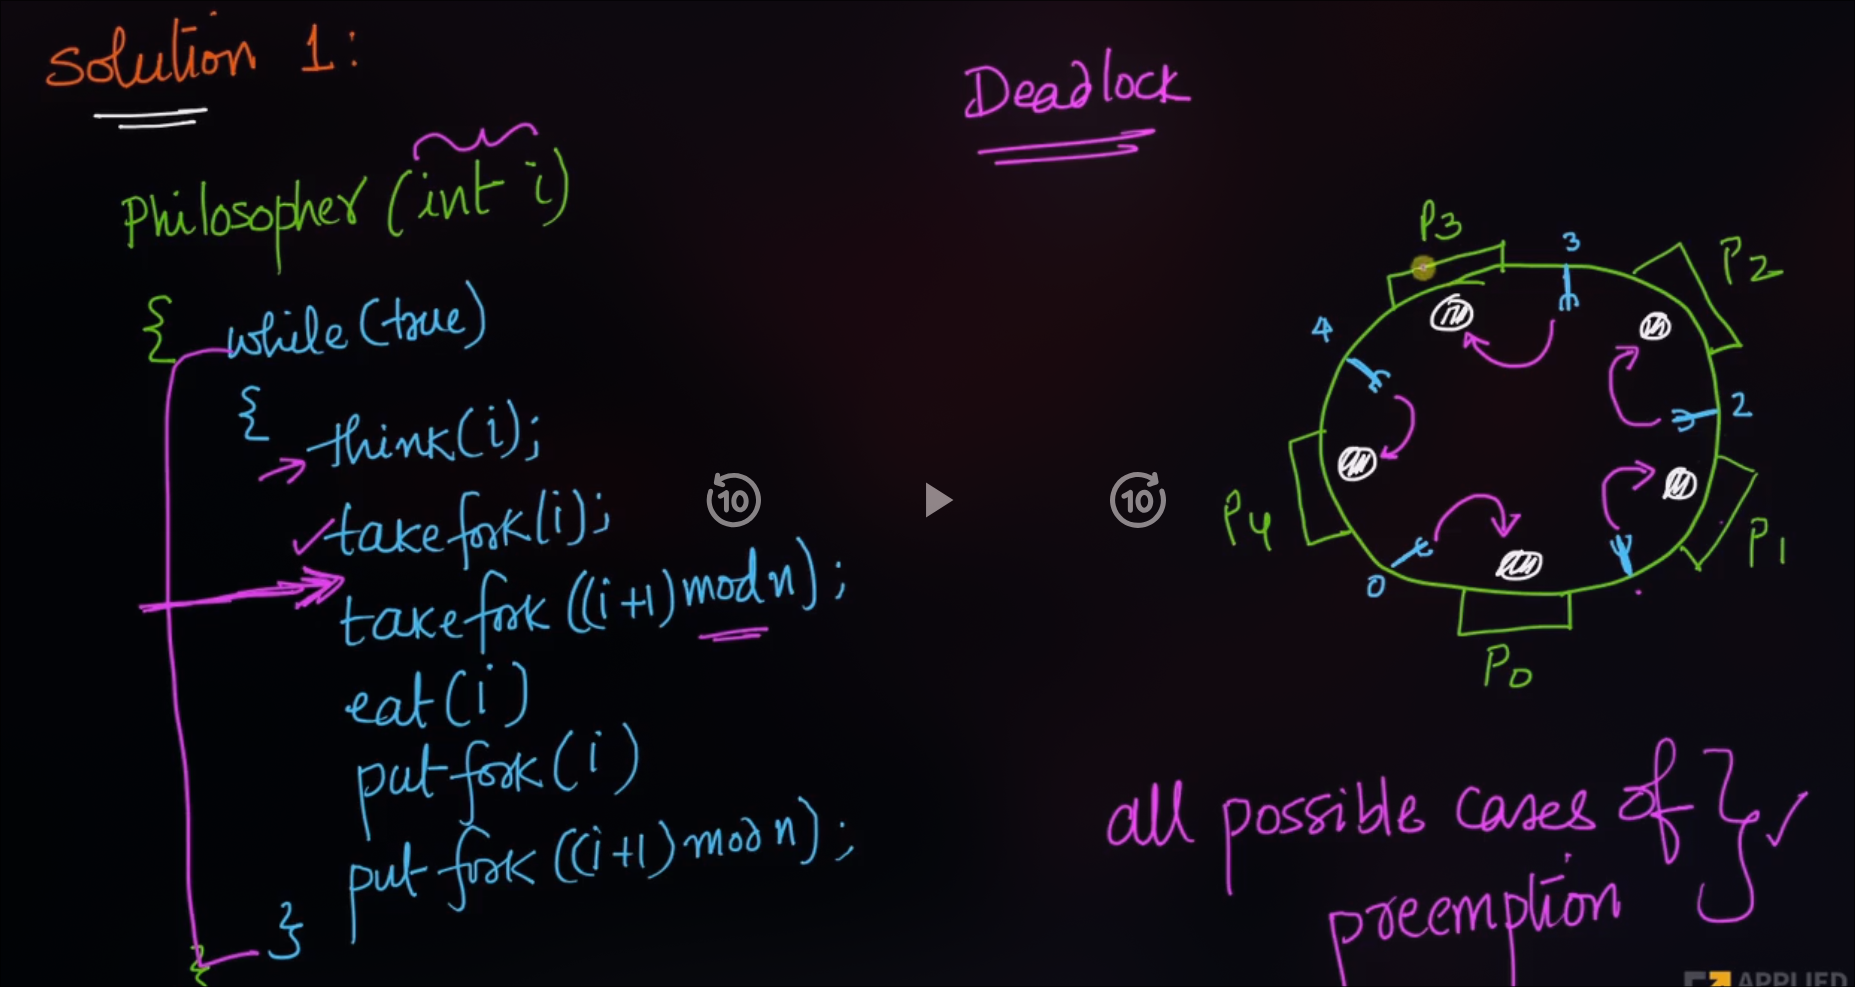 Solution 1:
Deadlock
Philosopher (int i)
{ while (true)
{
think(i);
take fork(i);
take fork ((i+1) mod n);
eat(i)
put fork (i)
put fork ((i+1) mod n);
}
}
P3
3
P2
4
2
P4
P1
0
P0
10
10
all possible cases of
preemption
APPLIED